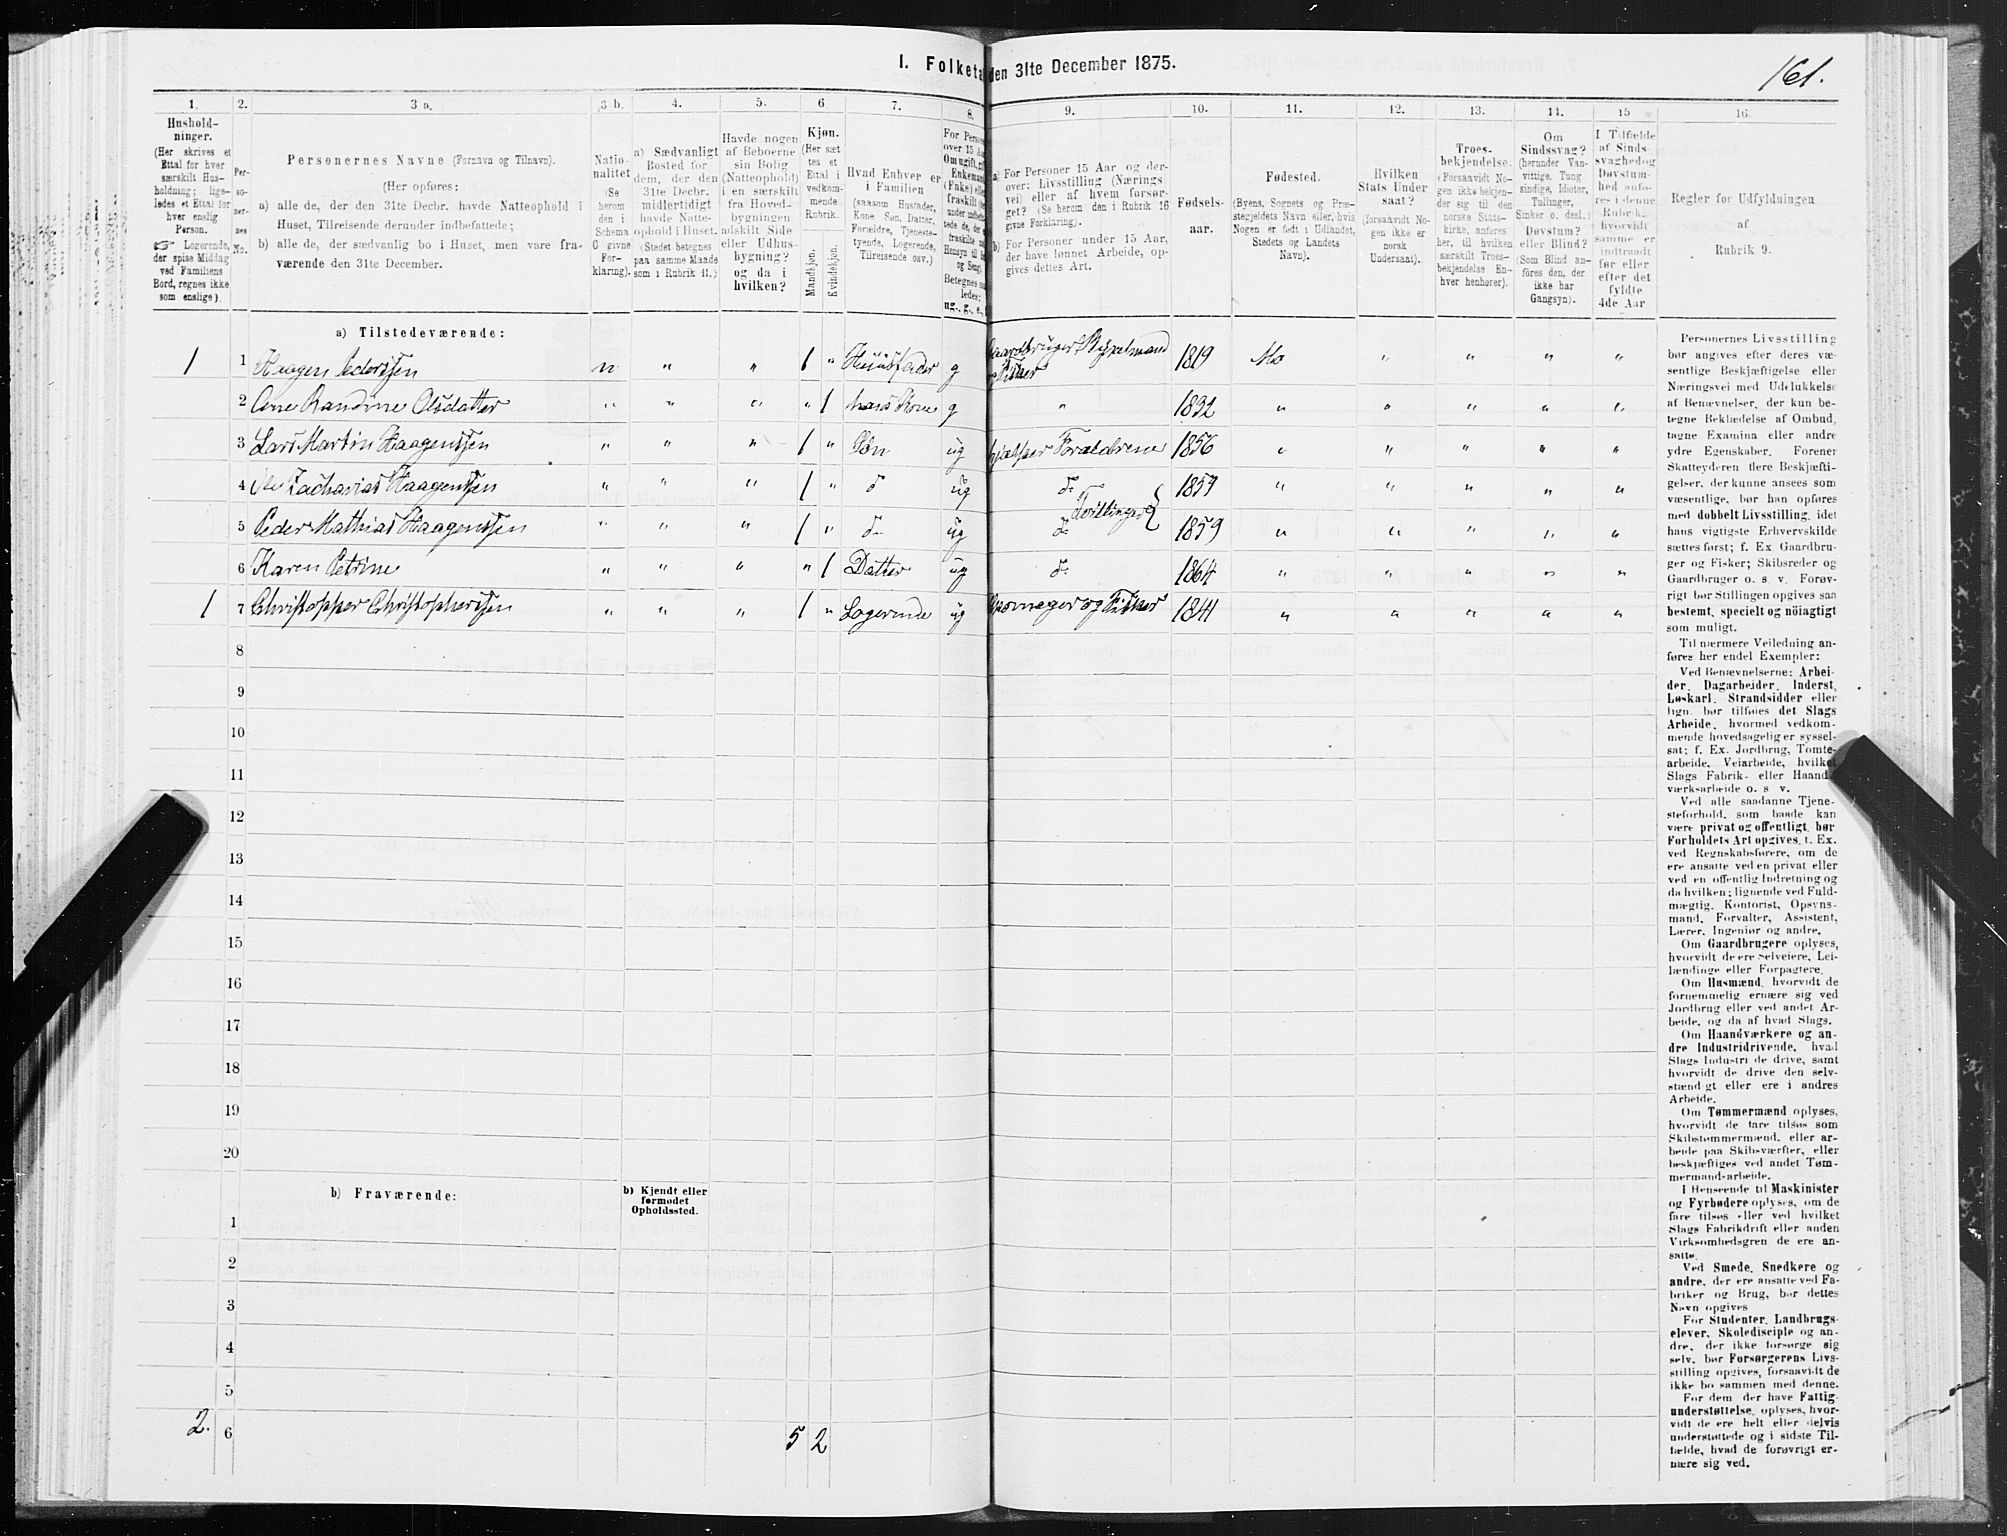 161.
I. Folketæ den 31te December 1875.
1. 2. 3 a. 3 b. 4. 5. 6. 7. 8. 9. 10. 11. 12. 13. 14. 15 16.
Hushold-
ninger.
(Her skrives et
Ettal for hver
særskilt Hus-
holdning; lige-
ledes et Ettal for
hver enslig
Person.
☞ Logerende,
der spise Middag
ved Familiens
Bord, regnes ikke
som enslige).
Per-
so-
ner-
nes
No.
Personernes Navne (Fornavn og Tilnavn).
(Her opføres:
a) alle de, der den 31te Decbr. havde Natteophold i
Huset, Tilreisende derunder indbefattede;
b) alle de, der sædvanlig bo i Huset, men vare fra-
værende den 31te December.
Natio-
nalitet
(Se
herom
den i
Schema
C givne
For-
klaring).
a) Sædvanligt
Bosted for
dem, der den
31te Decbr.
midlertidigt
havde Natte-
ophold i Huset.
(Stedet betegnes
paa samme Maade
som i Rubrik 11.)
Havde nogen
af Beboerne
sin Bolig
(Natteophold)
i en særskilt
fra Hoved-
bygningen
adskilt Side
eller Udhus-
bygning?
og da i
hvilken?
Kjøn.
(Her sæt
tes et
Ettal i
vedkom-
mende
Rubrik.
Mandkjøn.
Kvindekjøn.
Hvad Enhver er
i Familien
(saasom Husfader,
Kone, Søn, Datter,
Forældre, Tjeneste-
tyende, Logerende,
Tilreisende osv.)
For Person
over 15 Aar
Om ugift, g
Enkemand
(Enke) elle
fraskilt
ledes:
ug., g., e.,
a) For Personer 15 Aar og der-
over: Livsstilling (Nærings
vei) eller af hvem forsør-
get? (Se herom den i Rubrik 16
givne Forklaring).
b) For Personer under 15 Aar,
der have lønnet Arbeide, op-
gives dettes Art.
Fødsels-
aar.
Fødested.
(Byens, Sognets og Præ-
stegjeldets Navn eller, hvis
Nogen er født i Udlandet,
Stedets og Landets
Navn).
Hvilken
Stats Under
saat?
(forsaavidt No-
gen ikke er
norsk
Undersaat).
Troes-
bekjendelse.
(Forsaavidt No-
gen ikke bekjen-
der sig til den
norske Stats-
kirke, anføres
her, til hvilken
særskilt Troes-
bekjendelse En-
hver henhører).
Om
Sindssvag?
(herunder Van-
vittige, Tung
sindige, Idioter,
Tullinger,
Sinker o. desl.)
Døvstum?
eller Blind?
(Som Blind an-
føres den, der
ikke har
Gangsyn).
I Tilfælde
af Sinds-
svaghed og
Døvstum-
hed anfø-
res i denne
Rubrik,
hvorvidt
samme er
indtraadt
før eller
efter det
fyldte
4de Aar
Regler for Udfyldningen
af
Rubrik 9.
a) Tilstedeværende:
1 1 Haagen Pederssen n " " 1 " Huusfader g Gaardbruger, 
og Fisker 1819 Mo " " " "
2 Ane Randine Olsdatter " " " " 1 hans Kone g " 1832 " " " " "
3 Lars Martin Haagenssen " " " 1 " Søn ug hjælper Forældrene 1856 " " " " "
4 Zacharias Haagenssen " " " 1 " d ug do 1859 " " " " "
Tvillinger
5 Peder Mathias Haagenssen " " " 1 " do ug do 1859 " " " " "
6 Karen Petrine " " " " 1 Datter ug do 1864 " " " " "
1 7 Christopher Christopherssen " " " 1 " Logerende ug og Fisker 1841 " " " " "
8
9
10
11
12
13
14
15
16
17
18
19
20
b) Fraværende:
b) Kjendt eller
formodet
Opholdssted.
1
2
3
4
5
2. 6 5 2
Personernes Livsstilling
bør angives efter deres væ-
sentlige Beskjæftigelse eller
Næringsvei med Udelukkelse
af Benævnelser, der kun be-
tegne Beklædelse af Ombud,
tagne Examina eller andre
ydre Egenskaber. Forener
Skatteyderen flere Beskjæfti-
gelser, der kunne ansees som
væsentlige, bør han opføres
med dobbelt Livsstilling, idet
hans vigtigste Erhvervskilde
sættes først; f. Ex Gaardbru-
ger og Fisker; Skibsreder og
Gaardbruger o. s. v. Forøv-
rigt bør Stillingen opgives saa
bestemt, specielt og nöiagtigt
som muligt.
Til nærmere Veiledning an-
føres her endel Exempler:
Ved Benævnelserne: Arbei-
der, Dagarbeider, Inderst,
Løskarl, Strandsidder eller
lign. bør tilføies det Slags
Arbeide, hvormed vedkom-
mende hovedsagelig er syssel-
sat; f. Ex. Jordbrug, Tomte-
arbeide, Veiarbeide, hvilket
Slags Fabrik- eller Haand-
værksarbeide o. s v.
Ved alle saadanne Tjene-
steforhold, som baade kan
være privat og offentligt, bør
Forholdets Art opgives, t. Ex.
ved Regnskabsførere, om de
ere ansatte ved en privat eller
ved en offentlig Indretning og
da hvilken; lignende ved Fuld-
mægtig, Kontorist, Opsyns-
mand, Forvalter, Assistent,
Lærer, Ingeniør og andre.
Om Gaardbrugere oplyses,
hvorvidt de ere Selveiere, Lei-
lændinge eller Forpagtere.
Om Husmænd, hvorvidt de
fornemmelig ernære sig ved
Jordbrug eller ved andet Ar-
beide, og da af hvad Slags.
Om Haandværkere og an-
dre Industridrivende, hvad
Slags Industri de drive, samt
hvorvidt de drive den selv-
stændigt eller ere i andres
Arbeide.
Om Tømmermænd oplyses,
hvorvidt de fare tilsøs som
Skibstømmermænd, eller ar-
beide paa Skibsværfter, eller
beskjæftiges ved andet Tøm-
mermandsarbeide.
I Henseende til Maskinister
og Fyrbødere oplyses, om de
fare tilsøs eller ved hvilket
Slags Fabrikdrift eller anden
Virksomhedsgren de ere an-
satte.
Ved Smede, Snedkere og
andre, der ere ansatte ved Fa-
briker og Brug, bør dettes
Navn opgives
For Studenter, Landbrugs-
elever, Skoledisciple og an-
dre, der ikke forsørge sig
selv, bør Forsørgerens Livs-
stilling opgives, forsaavidt de
ikke bo sammen med denne.
For dem, der have Fattig-
understøttelse, oplyses, hvor-
vidt de ere helt eller delvis
understøttede og i sidste Til-
fælde, hvad de forøvrigt er-
nære sig ved.